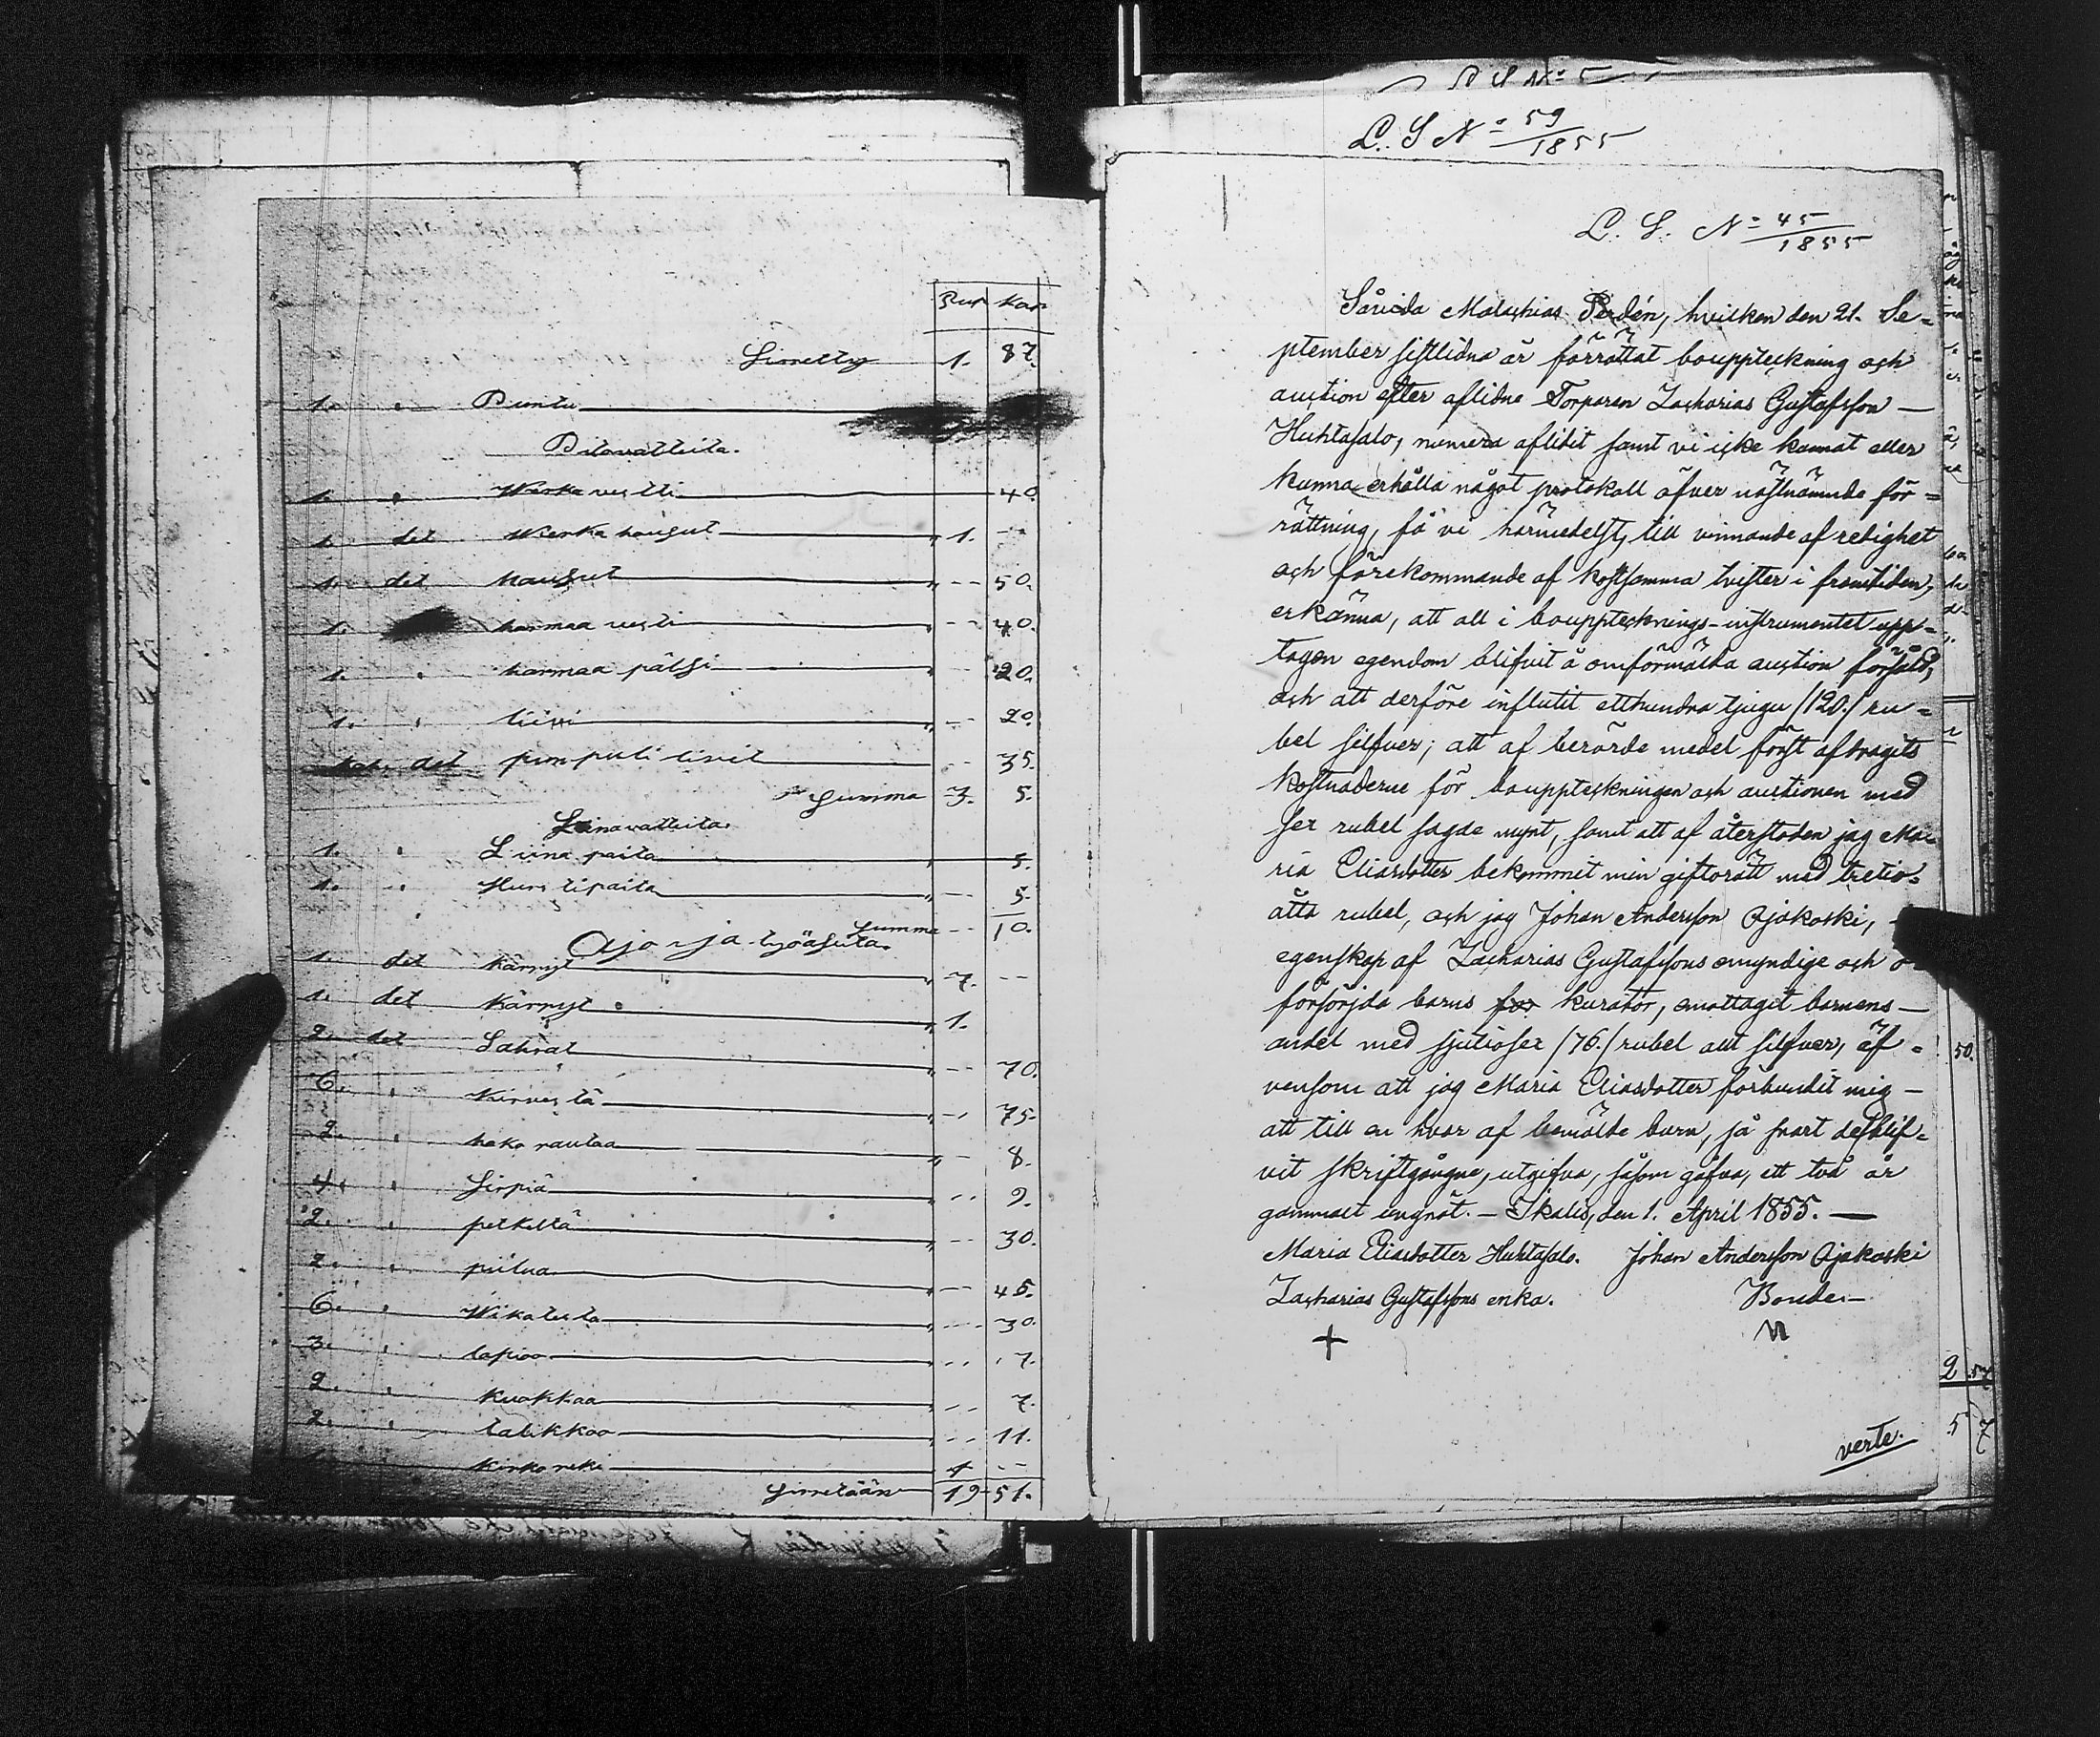 Rup Kop
Siirretty 1. 87.
1. " Puntu
Pitovatteita.
1. " Werka vesti 40.
1. det Werka housut " 1. --
1. det housut " -- 50.
1. harmaa vesti " -- 40.
1. " harmaa pälsi " -- 20.
1. " liivi " -- 20.
det pumpuli liivit -- 35.
Summa 3. 5.
Liinavatteita.
1. " Liina paita " 5.
1. " Hursti paita " -- 5.
Summa -- 10.
Ajo- ja työaseita.
1. det kärryt 7. --
1. det kärryt " 1.
2. det Sahrat " -- 70.
6. " kirvestä " -- 75.
2. " hako rautaa " -- 8.
4. " Sirpiä " -- 9.
2. " petkeltä " -- 30.
2. " piilua " -- 45.
6. " Wikatesta " -- 30.
3. " lapioo -- 7.
2. " kuokkaa " -- 7.
2. " talikkoo " -- 11.
1. kirko reki 4 --
Siirretään 19 51.
L. S No 59/1855
L. S. No 45/1855
Såvida Malachias Perdén, hvilken den 21. Se=
ptember sistlidna år förrättat bouppteckning och
auction efter aflidne Torparen Zacharias Gustafsson —
Huhtasalo, numera aflidit samt vi icke kunnat eller
kunna erhålla något protokoll öfver nästnämnde för=
rättning, få vi härmedelst, till vinnande af redighet
och förekommande af kostsamma tvister i framtiden,
erkänna, att all i bouppteckningsinstrumentet upp=
tagen egendom blifvit å omförmälda auction försåld,
och att derföre influtit etthundra tjugu /120./ ru=
bel silfver; att af berörde medel först afdragits
kostnaderne för bouppteckningen och auctionen med
sex rubel sagde mynt, samt att af återstoden jag Ma=
ria Eliasdotter bekommit min giftorätt med tretio=
åtta rubel, och jag Johan Andersson Ojakoski,
egenskap af Zacharias Gustafssons omyndige och o=
försörjda barns for kurator, emottagit barnens —
andel med sjutiosex /76./ rubel allt silfver, äf=
vensom att jag Maria Eliasdotter förbundit mig —
att till en hvar af bemälde barn, så snart det blif=
vit skriftgångne, utgifva, såsom gåfva, ett två år
gammalt ungnöt. — Ikalis, den 1. April 1855. —
Maria Eliasdotter Huhtasalo. Johan Andersson Ojakoski
Zacharias Gustafssons enka. Bonde. —
+
verte.
50.
2 54
5 7